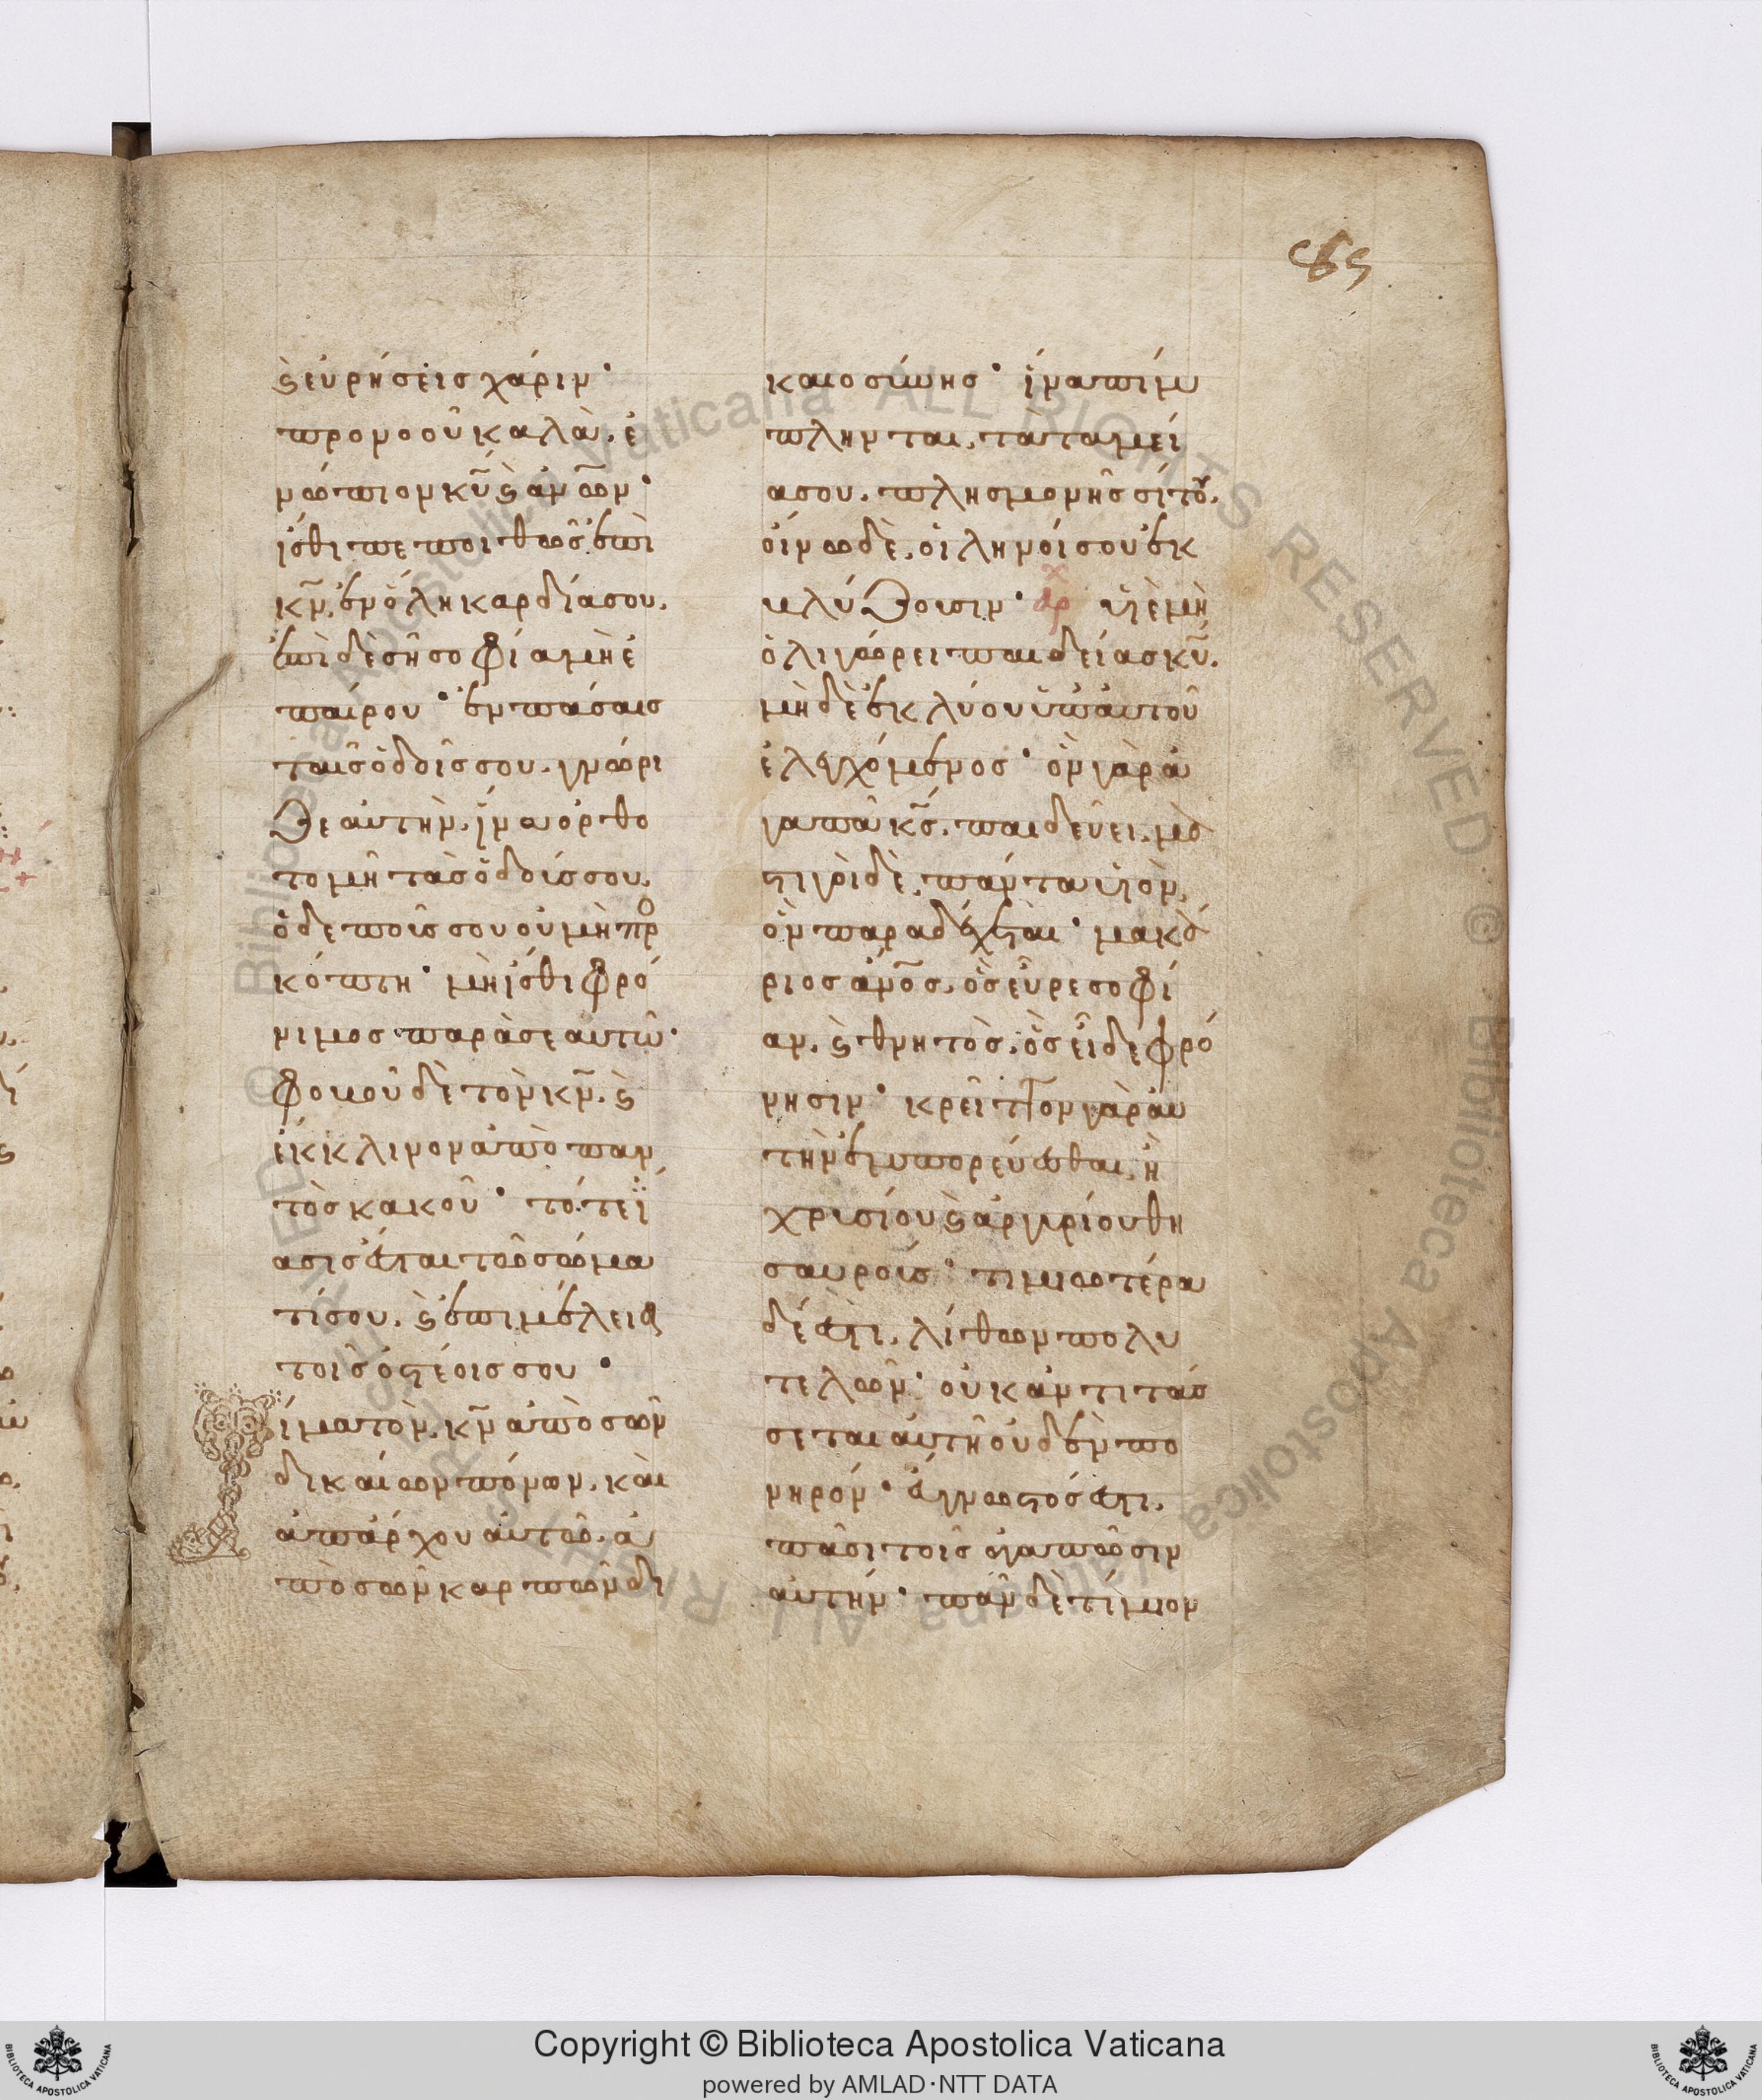 89
ϛ εὑρήσεις χάριν·
προνοοῦ καλὰ. ἐ
νώπιον κυ̅ ϛ ἀνω̅ν·
ἴσθι πεποιθὼς ἐπὶ
κν̅. ἐν ὅλη καρδία σου.
ἐπὶ δὲ σῆ σοφία μὴ ἐ
παίρου· ἐν πάσαις
ταῖς ὁδοῖς σου. γνώρι
ζε αὐτὴν. ἵνα ὀρθο
τομῆ τὰς ὁδούς σου.
ὁ δὲ ποῦς σου οὐ μὴ προ
κόπτη· μὴ ἴσθι φρό
νιμος παρὰ σεαυτῶ·
φοβοῦ δὲ τὸν κν̅. ϛ
ἔκκλινον ἀπὸ παν
τὸς κακοῦ· τότε ἴ
ασις ἔσται τῶ σώμα
τί σου. ϛ ἐπιμέλεια
τοῖς ὀστέοις σου·
Τίμα τὸν κν̅ ἀπὸ σῶν
δικαίων πόνων. καὶ
ἀπάρχου αὐτῶ. ἀ
πὸ σῶν καρπῶν δι
καιοσύνης· ἵνα πίμ
πληνται. τὰ ταμεῖ
α σου. πλησμονῆς σίτου.
οἴνω δὲ. οἱ ληνοί σου ἐκ
βλύζουσιν· ἀρχ υἱὲ μὴ
ὀλιγώρει παιδείας κυ̅.
μὴ δὲ ἐκλύου ὑπ' αὐτοῦ
ἐλεγχόμενος· ὃν γὰρ ἀ
γαπᾶ κς̅. παιδεύει. μα
στιγοῖ δὲ. πάντα υἱὸν.
ὃν παραδέχεται· μακά
ριος ἀνο̅ς. ὃς εὗρε σοφί
αν. ϛ θνητὸς. ὃς εἶδε φρό
νησιν· κρεῖττον γὰρ αὐ
τὴν ἐμπορεύεσθαι. ἢ
χρυσίου ϛ ἀργυρίου θη
σαυρούς· τιμιωτέρα
δέ ἐστι. λίθων πολυ
τελῶν· οὐκ ἀντιτάσ
σεται αὐτῆ οὐδὲν πο
νηρόν· εὔγνωστός ἐστι.
πᾶσι τοῖς ἀγαπῶσιν
αὐτήν· πᾶν δὲ τίμιον
Copyright © Biblioteca Apostolica Vaticana
powered by AMLAD·NTT DATA